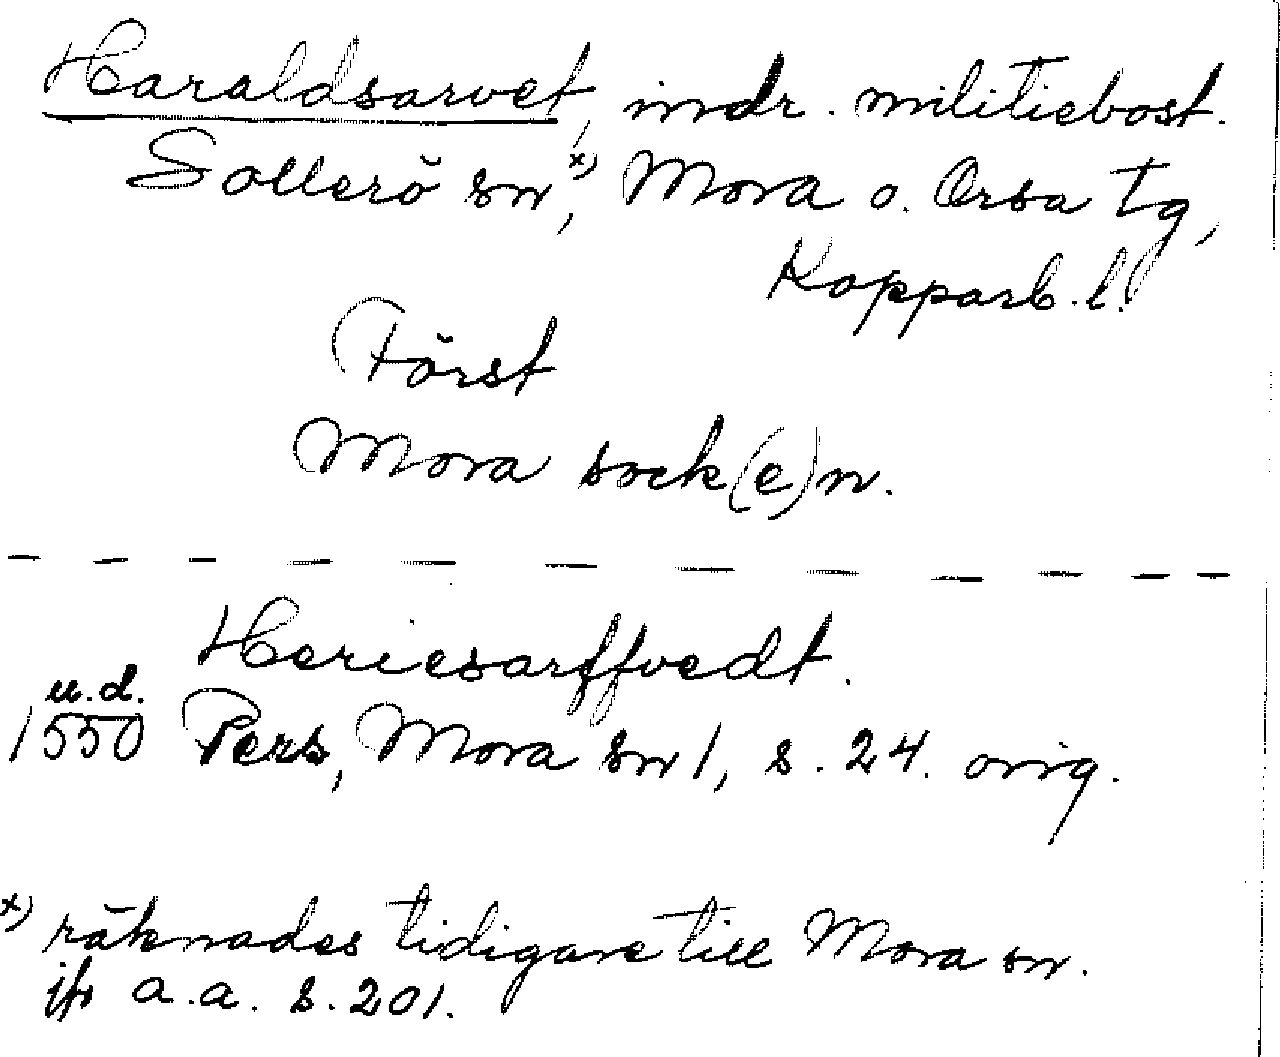 Haraldsarvet, indr. militiebost.
Sollerö sn,x) Mora o. Orsa tg,
Kopparb. l.
Först
Mora sock(e)n.
Heriesarffvedt.
u.d.
1550 Pers, Mora sn 1, s. 24. orig.
x) räknades tidigare till Mora sn.
jfr a.a. s. 201.